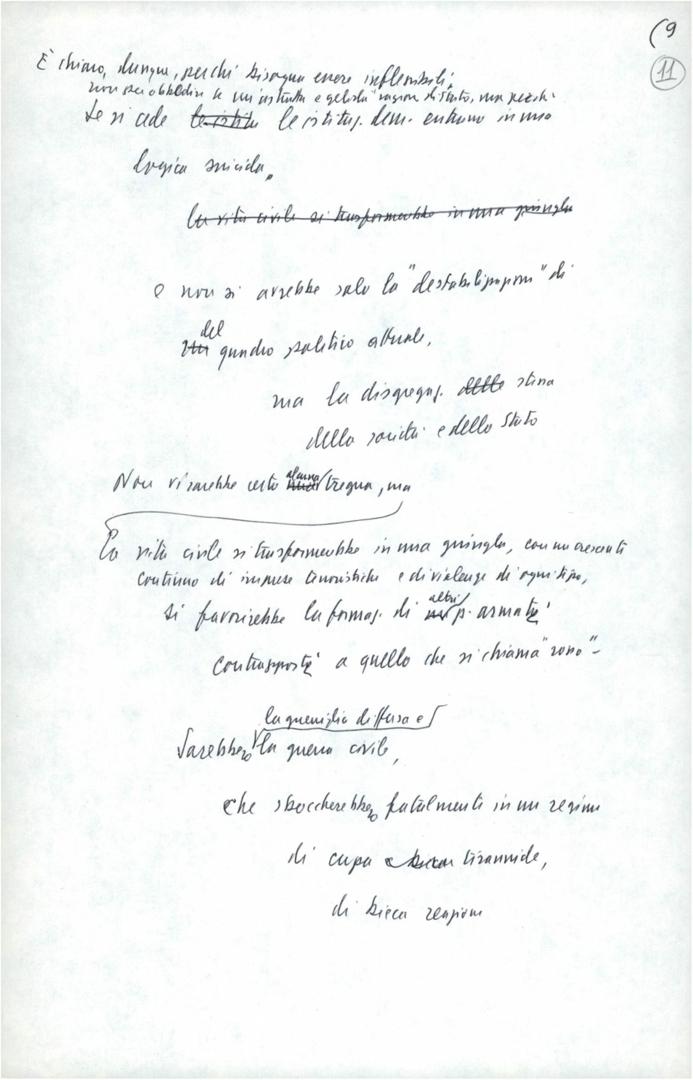 (9
11
È chiaro, dunque, perché bisogna essere inflessibili;
non per obbedire a un'astratta e gelida "ragion di Stato, ma perché
se si cede le istitu le istituz. dem. entrano in una
logica suicida,
la vita civile si trasformerebbe in una giungla
e non si avrebbe solo la "destabilizzazione" di
del
quadro politico attuale,
ma la disgregaz. della stessa
della società e dello Stato
alcuna
Non vi sarebbe certo tregua, ma
La vita civile si trasformerebbe in una giungla, con un crescente
continuo di imprese terroristiche e di violenze di ogni tipo,
altri
si favorirebbe la formaz. di p. armati
contrapposti a quello che si chiama "rosso" -
la guerriglia diffusa e
Sarebbero la guerra civile,
che sboccherebbero fatalmente in un regime
di cupa e bieca tirannide,
di bieca reazione